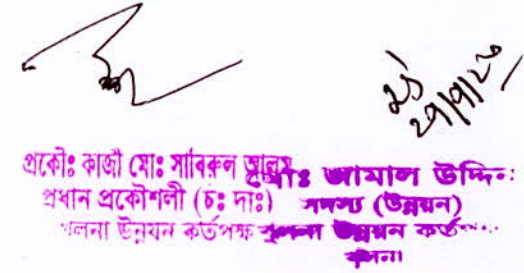 প্রকৌঃ কাজী মোঃ সাবিরুল আলম
প্রধান প্রকৌশলী (চঃ দাঃ)
খুলনা উন্নয়ন কর্তৃপক্ষ
মোঃ জামাল উদ্দিন
সদস্য (উন্নয়ন)
খুলনা উন্নয়ন কর্তৃপক্ষ
খুলনা।